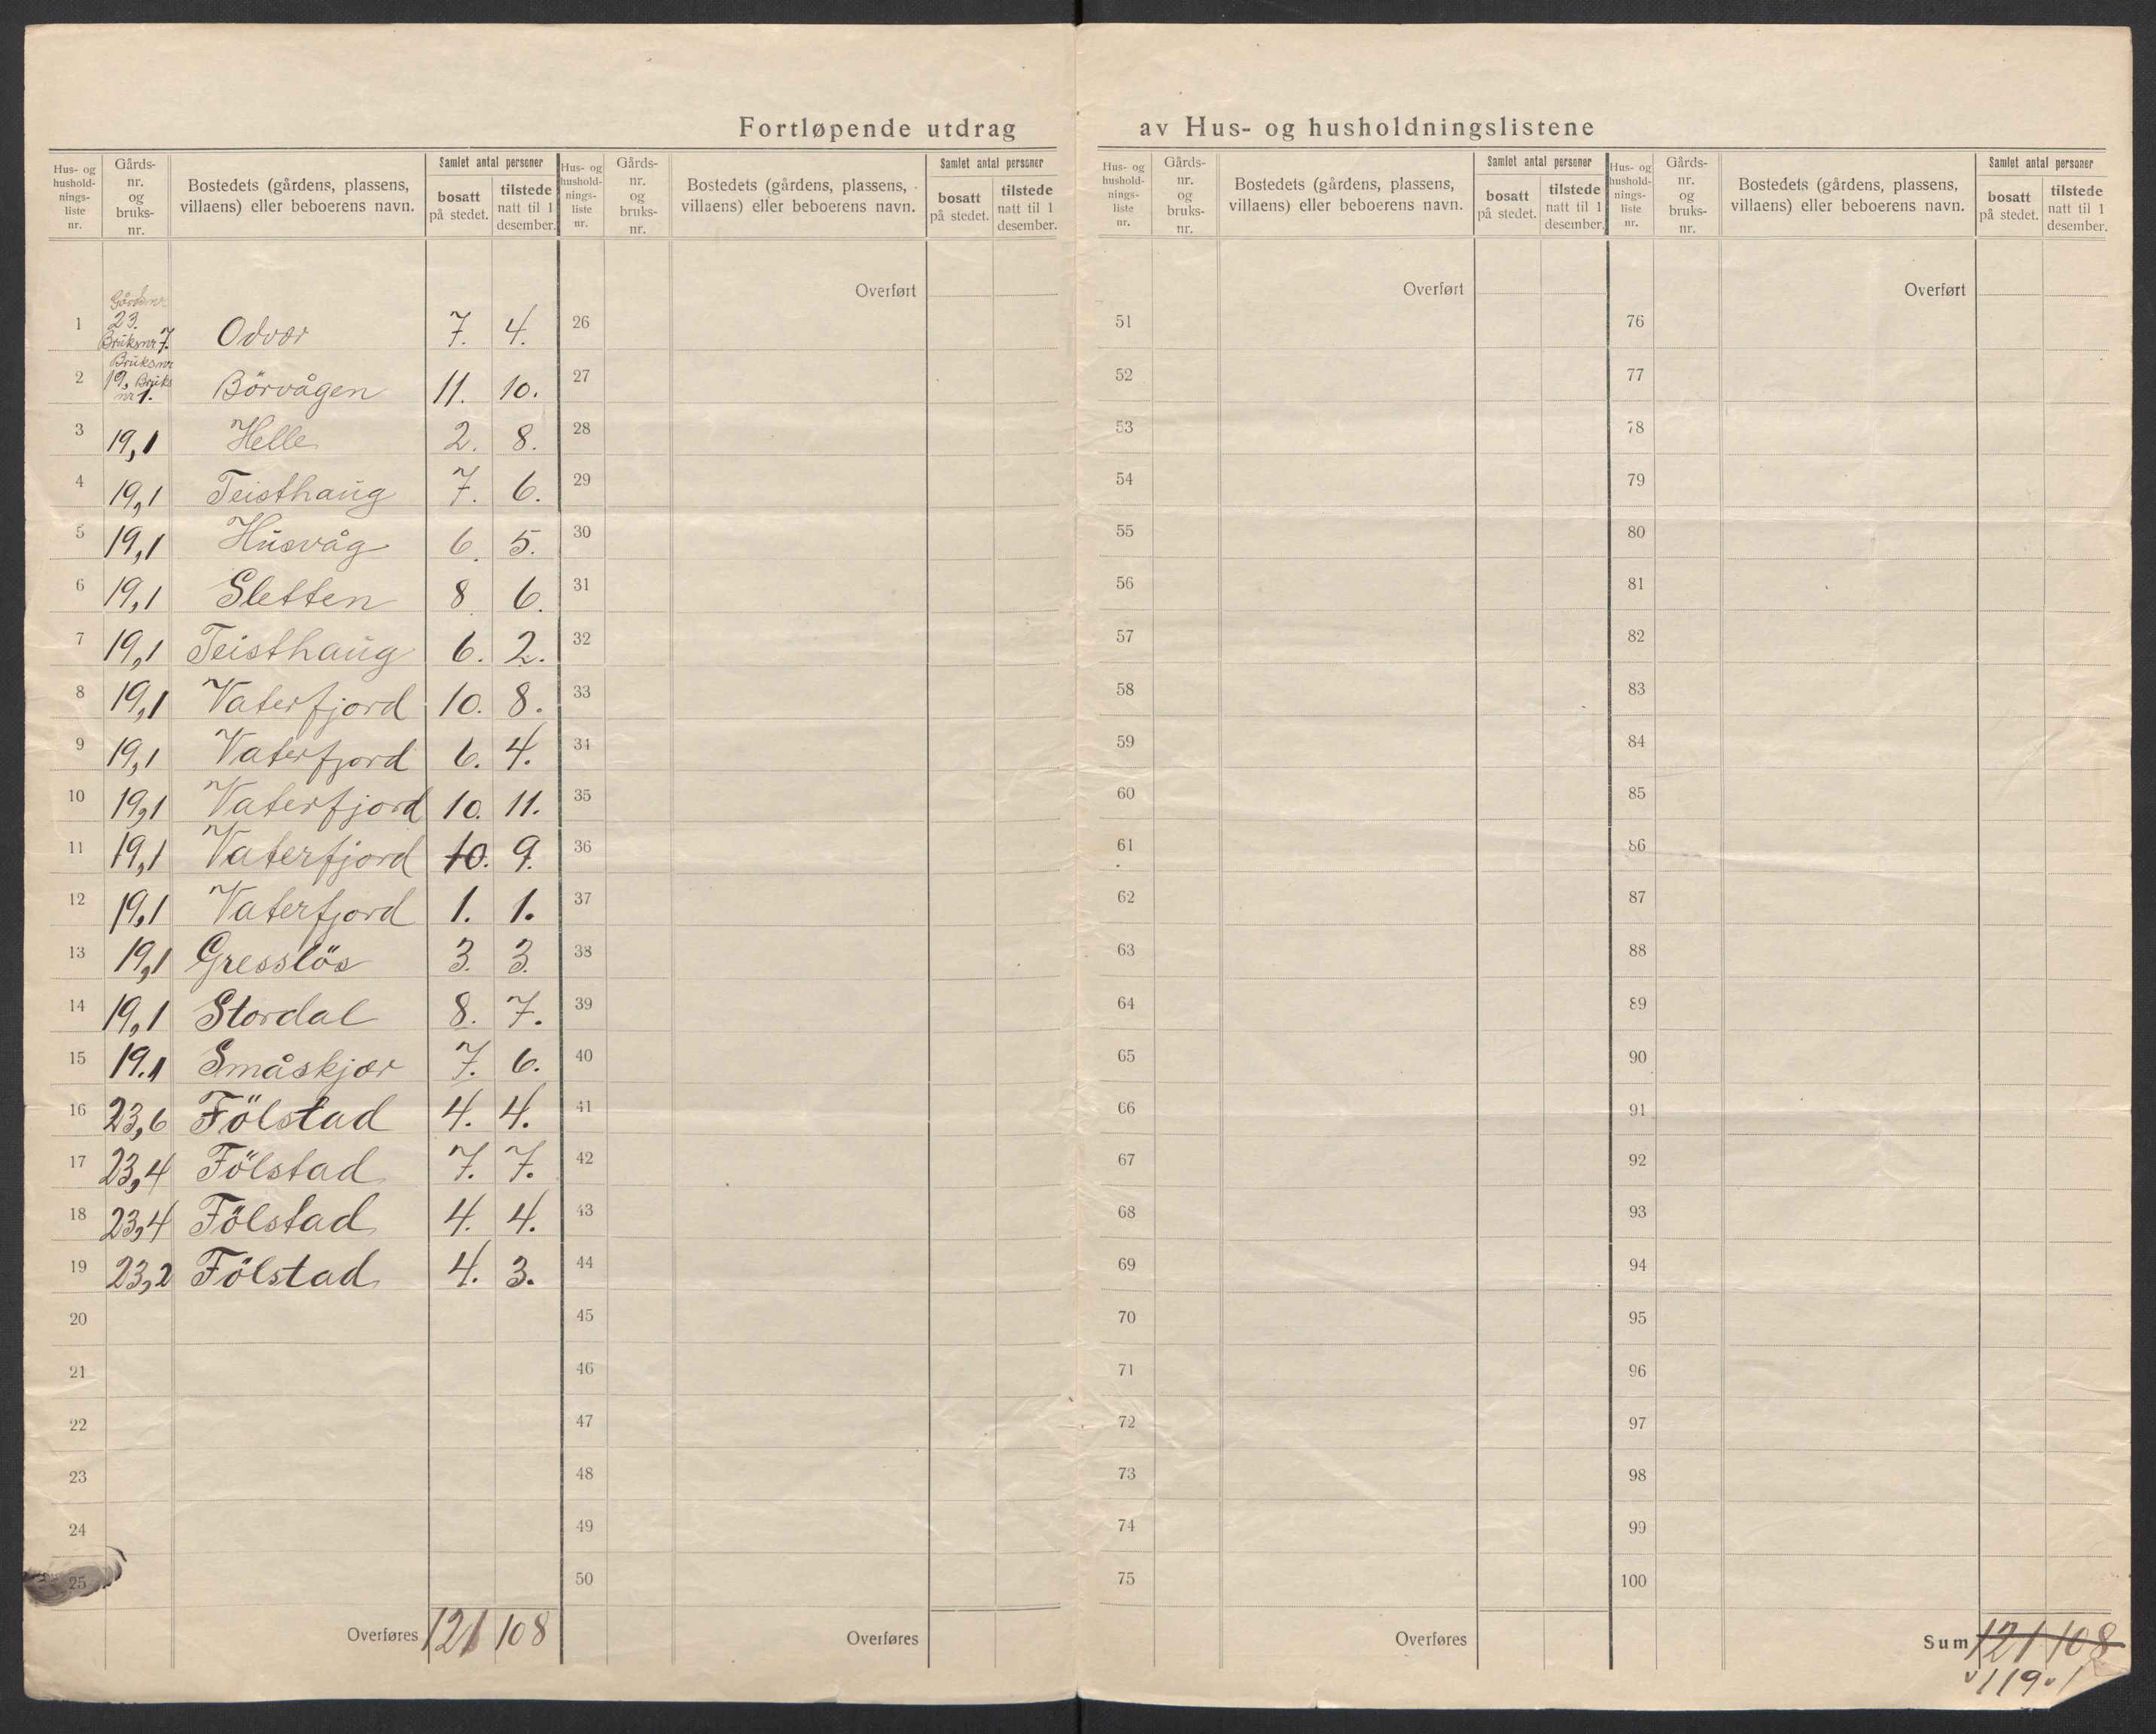 Fortløpende utdrag av Hus- og husholdningslistene
Hus- og husholdnings-liste nr. Gårds-nr. og bruks-nr. Bostedets (gårdens, plassens, villaens) eller beboerens navn. Samlet antal personer bosatt på stedet. tilstede natt til 1 desember.
Hus- og husholdnings-liste nr. Gårds-nr. og bruks-nr. Bostedets (gårdens, plassens, villaens) eller beboerens navn. Samlet antal personer bosatt på stedet. tilstede natt til 1 desember.
Hus- og husholdnings-liste nr. Gårds-nr. og bruks-nr. Bostedets (gårdens, plassens, villaens) eller beboerens navn. Samlet antal personer bosatt på stedet. tilstede natt til 1 desember.
Hus- og husholdnings-liste nr. Gårds-nr. og bruks-nr. Bostedets (gårdens, plassens, villaens) eller beboerens navn. Samlet antal personer bosatt på stedet. tilstede natt til 1 desember.
Overført Overført Overført
1 Gårdsnr 23. Bruksnr 7. Odvær 7. 4. 26 51 76
2 Bruksnr 19, Bruks nr 1. Börvågen 11. 10. 27 52 77
3 19,1 Helle 2. 8. 28 53 78
4 19,1 Teisthaug 7. 6. 29 54 79
5 19,1 Husvåg 6. 5. 30 55 80
6 19,1 Sletten 8 6. 31 56 81
7 19,1 Teisthaug 6. 2. 32 57 82
8 19,1 Vaterfjord 10. 8. 33 58 83
9 19,1 Vaterfjord 6. 4. 34 59 84
10 19,1 Vaterfjord 10. 11. 35 60 85
11 19,1 Vaterfjord 10. 9. 36 61 86
12 19,1 Vaterfjord 1. 1. 37 62 87
13 19,1 Gresslös 3. 3. 38 63 88
14 19,1 Stordal 8. 7. 39 64 89
15 19.1 Småskjær 7. 6. 40 65 90
16 23,6 Fölstad 4. 4. 41 66 91
17 23,4 Fölstad 7. 7. 42 67 92
18 23,4 Fölstad 4. 4. 43 68 93
19 23,2 Fölstad 4. 3. 44 69 94
20 45 70 95
21 46 71 96
22 47 72 97
23 48 73 98
24 49 74 99
25 50 75 100
Overføres 121 108 Overføres Overføres Sum 121 108
119